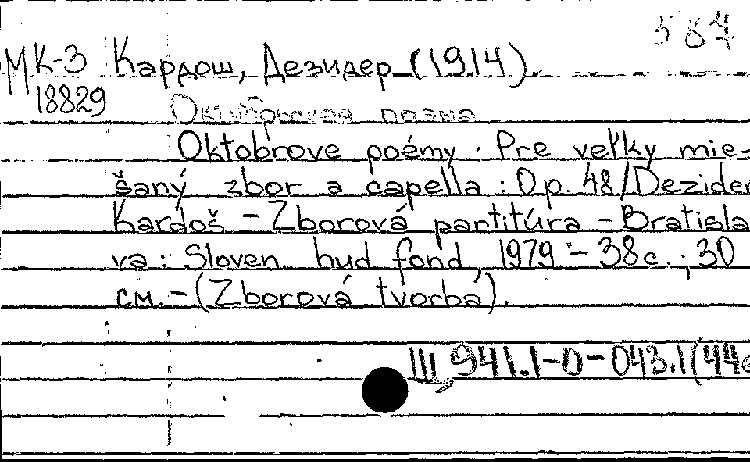 587
МК-3 Кардош, Дезидер (1914).
18829 Октябрская поэма
Oktobrove poémy. Pre veľky mie-
šaný zbor a capella: Op. 48/Dezider
Kardoš – Zborová partitúra – Bratisla
va: Sloven hud fond, 1979 – 38с.; 30
см. – (Zborová tvorba).
Ш 941.1-0-043.1(44